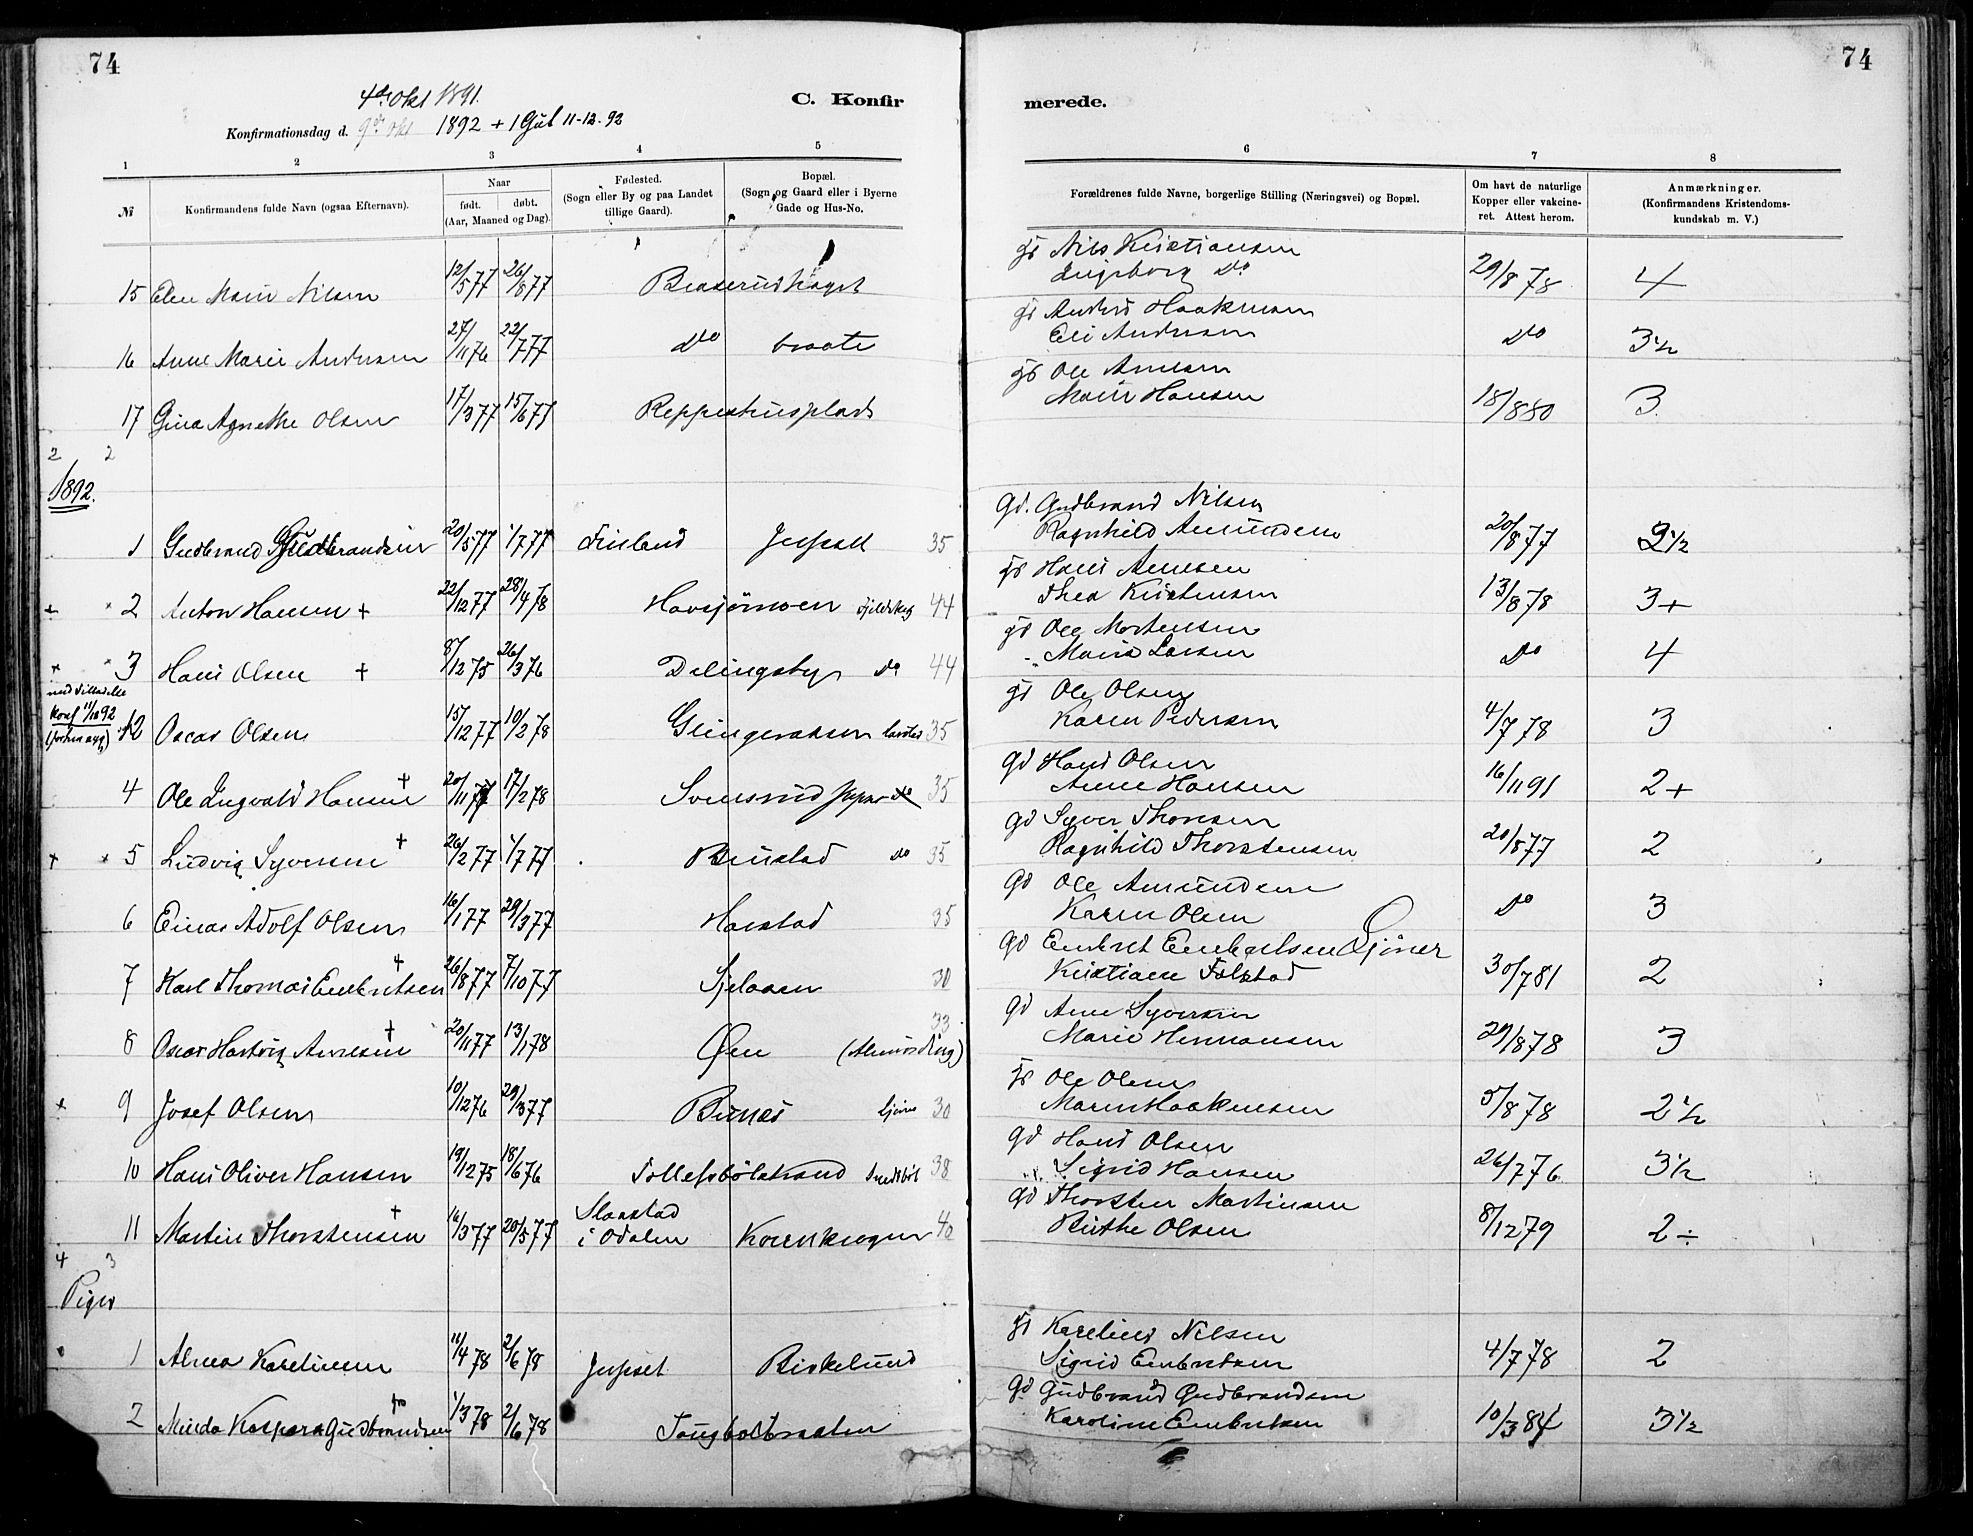 74
74
4de Okt 1891.
C. Konfir
merede.
Konfirmationsdag d. 9de Okt 1892 + 1 Gut 11-12-92
1 2 3 4 5 6 7 8
№
Konfirmandens fulde Navn (ogsaa Efternavn).
Naar
født. døbt.
(Aar, Maaned og Dag).
Fødested.
(Sogn eller By og paa Landet
tillige Gaard).
Bopæl.
(Sogn og Gaard eller i Byerne
Gade og Hus-No.
Forældrenes fulde Navne, borgerlige Stilling (Næringsvei) og Bopæl.
Om havt de naturlige
Kopper eller vakcine-
ret. Attest herom.
Anmærkninger.
(Konfirmandens Kristendoms-
kundskab m. V.)
15 Elen Marie Nilsen 12/5 77 26/8 77 gs Nils Kristiansen
Ingeborg do 29/8 78 4
16 Anne Marie Andersen 27/11 76 22/7 77 do braate gs Anders Haakensen
Eli Andersen do 3½
17 Gina Agnethe Olsen 17/3 77 15/6 77 gs Ole Arnesen
Marie Hansen 18/8 80 3
2 2
1892.
1 Gudbrand Gudbrandsen 20/5 77 1/7 77 35 Gd. Gudbrand Nilsen
Ragnhild Amundsen 20/8 77 2½
+ × 2 Anton Hansen + 22/12 77 28/4 78 Havsjømoen 44 gs Hans Arnesen
Thea Kristensen 13/8 78 3+
+ × 3 Hans Olsen + 8/12 75 26/3 76 Delingsby do 44 gs Ole Mortensen
Maria Larsen do 4
Konf 11/12 92
12 Oscar Olsen 15/12 77 10/2 78 35 gs Ole Olsen
Karen Pedersen 4/7 78 3
4 Ole Ingvald Hansen + 20/11 77 17/2 78 Svensrud 35 Gd Hans Olsen
Anne Hansen 16/11 91 2+
+ × 5 Ludvig Syversen + 26/2 77 1/7 77 Brustad do 35 Gd Syver Thoresen
Ragnhild Thorstensen 20/8 77 2
6 Einar Adolf Olsen 16/1 77 29/3 77 Harstad 35 Gd Ole Amundsen
Karen Olsen do 3
7 Karl Thomas Embretsen + 26/8 77 7/10 77 30 Gd Embret Embretsen
Kristiane 30/7 81 2
8 Oscar Hartvig Arnesen + 20/11 77 13/1 78 Øen 33 Gd Arne Syversen
Marie Hermansen 29/8 78 3
× 9 Josef Olsen 10/12 76 29/3 77 30 gs Ole Olsen
Maren Haakensen 5/8 78 2½
10 Hans Oliver Hansen 19/12 75 18/6 76 38 Gd Hans Olsen
Sigrid Hansen 26/7 76 3½
11 Martin Thorstensen + 16/3 77 20/5 77 Slaastad
i Odalen 40 Gd Thorsten Martinsen
Birthe Olsen 8/12 79 2÷
4 3
Piger
1 Alma Karelinsen 11/4 78 2/6 78 Birkelund gs Karelius Nilsen
Sigrid Embretsen 4/7 78 2
2 Kaspara Gudbrandsen 1/3 78 2/6 78 Gd Gudbrand Gudbrandsen
Karoline Embretsen 10/3 84 3½